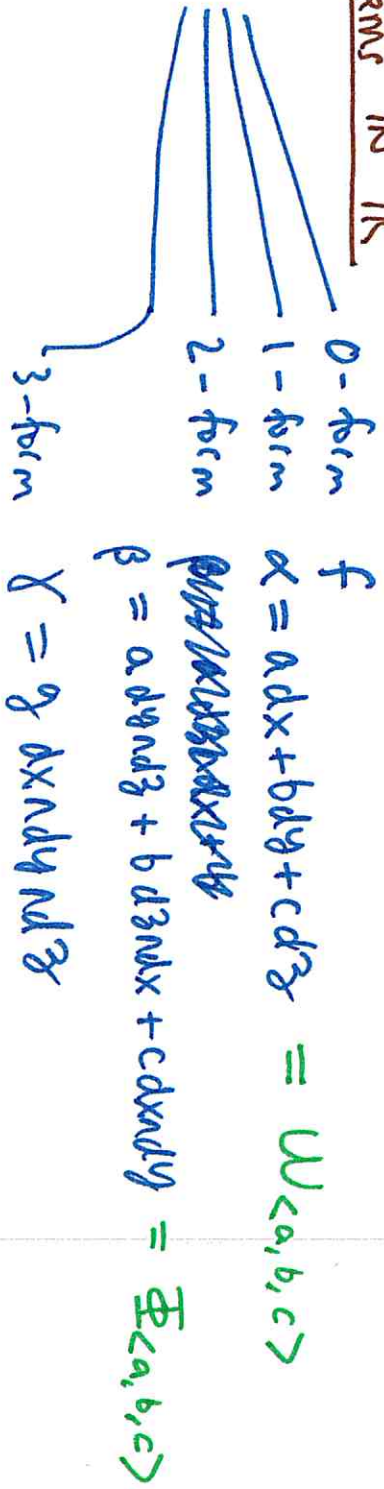 RMS IN R
0-form f
1-form α = adx + bdy + cdz = ω<a,b,c>
2-form
β = a dy∧dz + b dz∧dx + c dx∧dy = Φ<a,b,c>
3-form γ = g dx∧dy∧dz